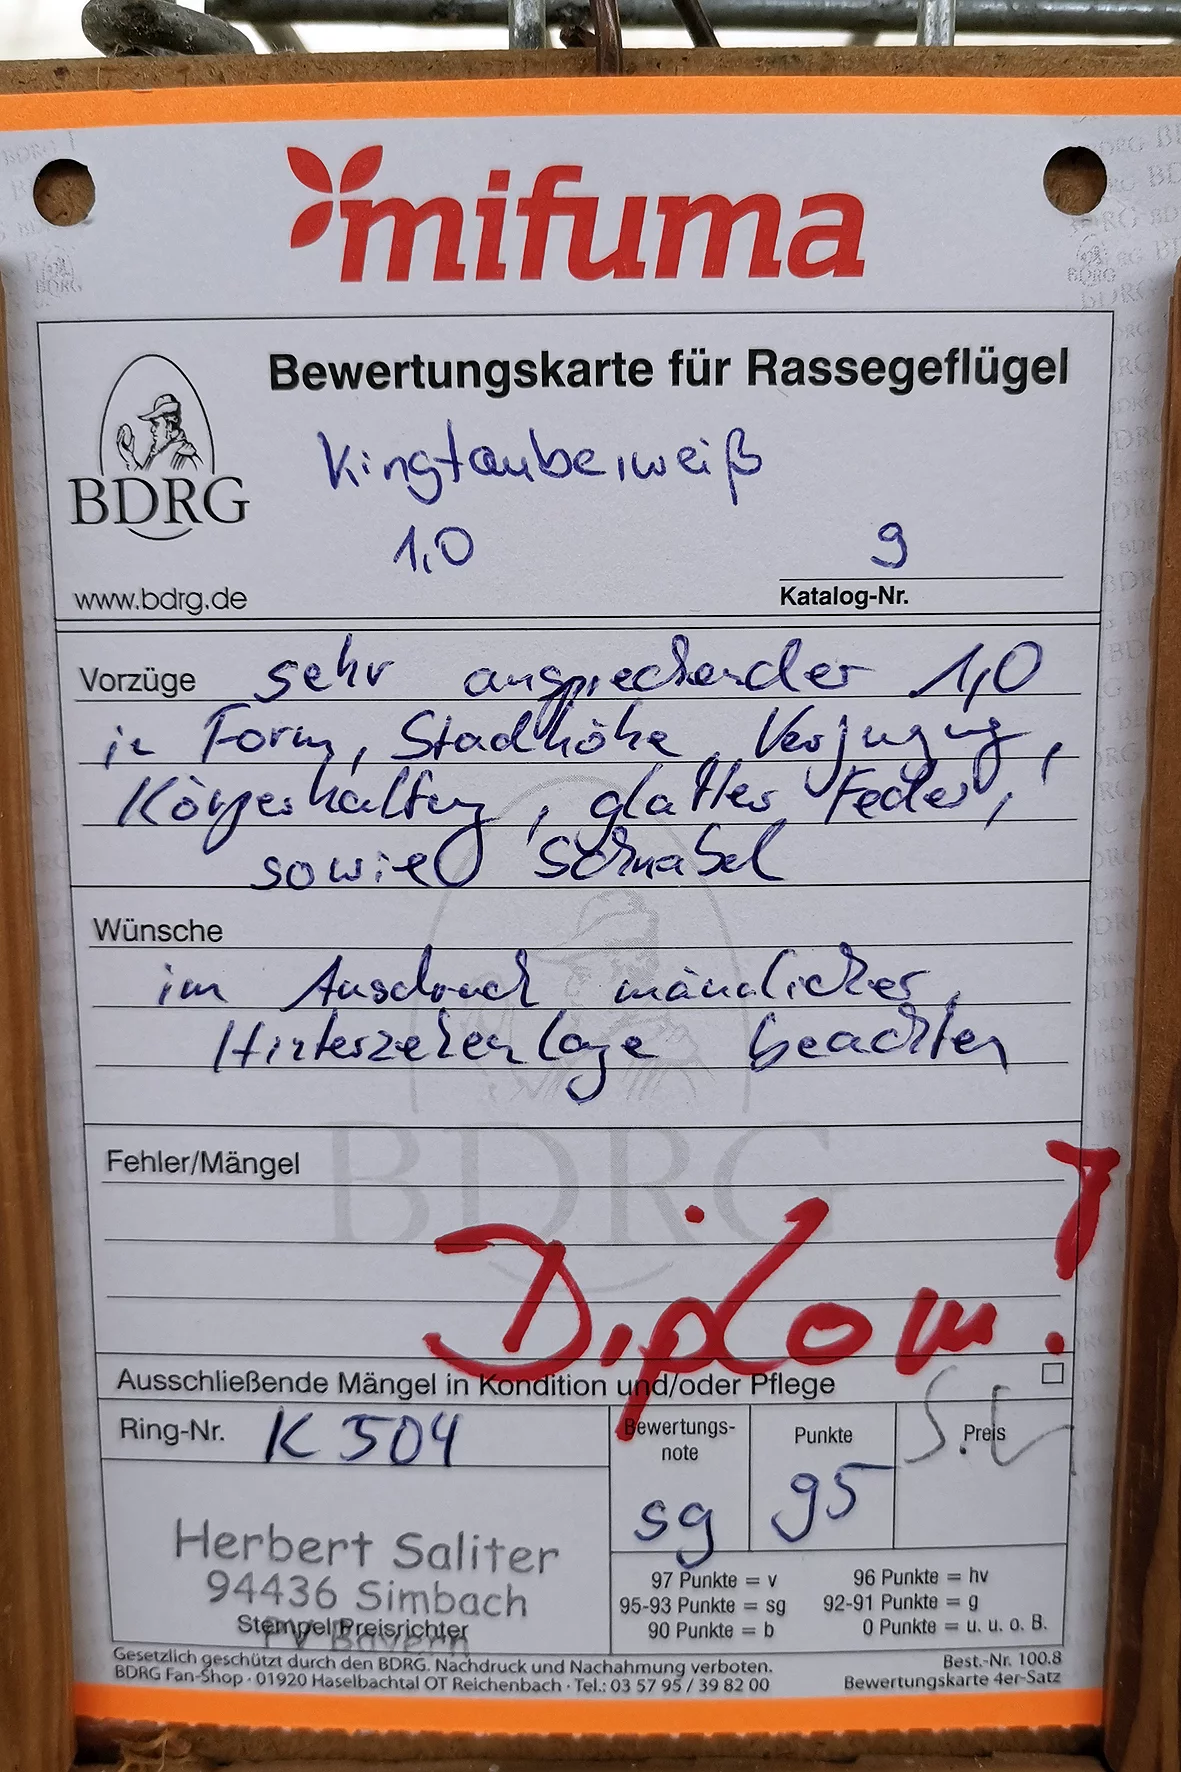 mifuma
Bewertungskarte für Rassegeflügel
BDRG
Kingtaube, weiß
1,0
9
www.bdrg.de
Katalog-Nr.
Vorzüge sehr ansprechender 1,0
in Form, Standhöhe, Verjugung,
Körperhaltung, glatter Feder,
sowie Schnabel
Wünsche
im Ausdruck männlicher,
Hinterzehenlage beachten
Fehler/Mängel
BDRG
Diplom!
Ausschließende Mängel in Kondition und/oder Pflege
Ring-Nr. K 504
Bewertungs-
note
sg
Punkte
95
Preis
Herbert Saliter
94436 Simbach
Stempel Preisrichter
PV Bayern
97 Punkte = v
96 Punkte = hv
95-93 Punkte = sg
92-91 Punkte = g
90 Punkte = b
0 Punkte = u. u. o. B.
Gesetzlich geschützt durch den BDRG. Nachdruck und Nachahmung verboten.
BDRG Fan-Shop · 01920 Haselbachtal OT Reichenbach · Tel.: 03 57 95 / 39 82 00
Best.-Nr. 100.8
Bewertungskarte 4er-Satz